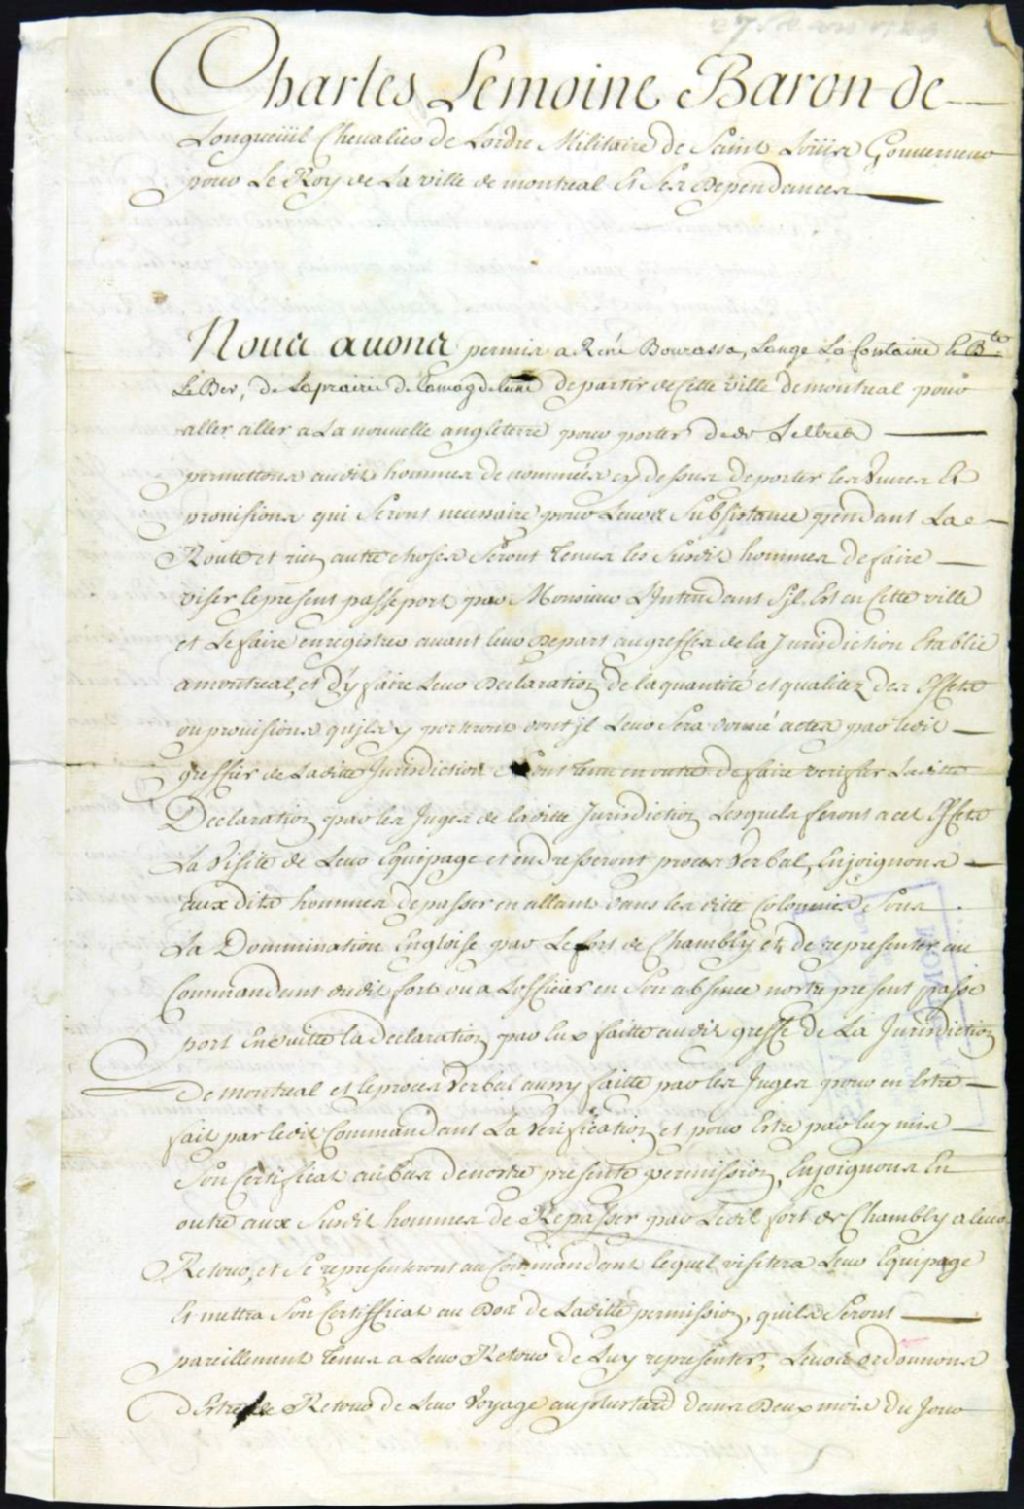 Charles Lemoine Baron de
Longueüil Chevalier de Lordre Militaire de Saint Loüis Gouverneur
pour Le Roy de La ville de montreal Et Ses Dependances
Nous avons permis a René Bourassa, Lange La fontaine le Bte
LeBer, de Laprairie de Lamagdelene de partir de Cette ville de montreal pour
aller aller a La nouvelle angleterre pour porter des Lettres
permettons audit hommes de nommés cy dessus deporter les Vivres Et
provisions qui Seront necessaire pour Leurs Subsistance pendant La
Route et rien autre choses Seront Tenus les Susdit hommes de faire
viser lepresent passeport par Monsieur L'Intendant Sjl Est en Cette ville
et Le faire enregistrer avant leur Depart augreffes de la Jurisdiction Etablie
amontreal, et d'y faire Leur Declaration de laquantité et qualitez des Effets
ou provisions qujls y porteront dont jl Leur Sera donné actes par ledit
greffier de Laditte Jurisdiction Seront tenu en outre de faire verifier Laditte
Declaration par les Juges de laditte Jurisdiction Lesquels feront a cet Effets
La Visite de Leur Equipage et en dresseront proces Verbal, Enjoignons
aux dits hommes de passer en allant dans les ditte Colonnies Sous
La Dommination Engloise par Le fort de Chambly et de representer au
Commandant dudit fort ou a Lofficier en Son absence nostre present passe
port Ensuitte la declaration par Eux faitte audit greffe de La Jurisdiction
De montreal et leproces Verbal aussy faitte par les Juges pour en Estre
fait par ledit Commandant La Verification et pour Estre par luy mis
Son Certificat au bas denostre presente permission, Enjoignons En
outre aux Susdit hommes de Repasser par Ledit fort de Chambly a leur
Retour, et Se representeront au Commandant lequel visitera Leur Equipage
Et mettra Son Certifficat au Bas de Laditte permission, quils Seront
pareillement Tenus a Leur Retour de Luy representer, Leurs ordonnons
Destre de Retour de Leur Voyage auplustard dans Deux mois du Jour